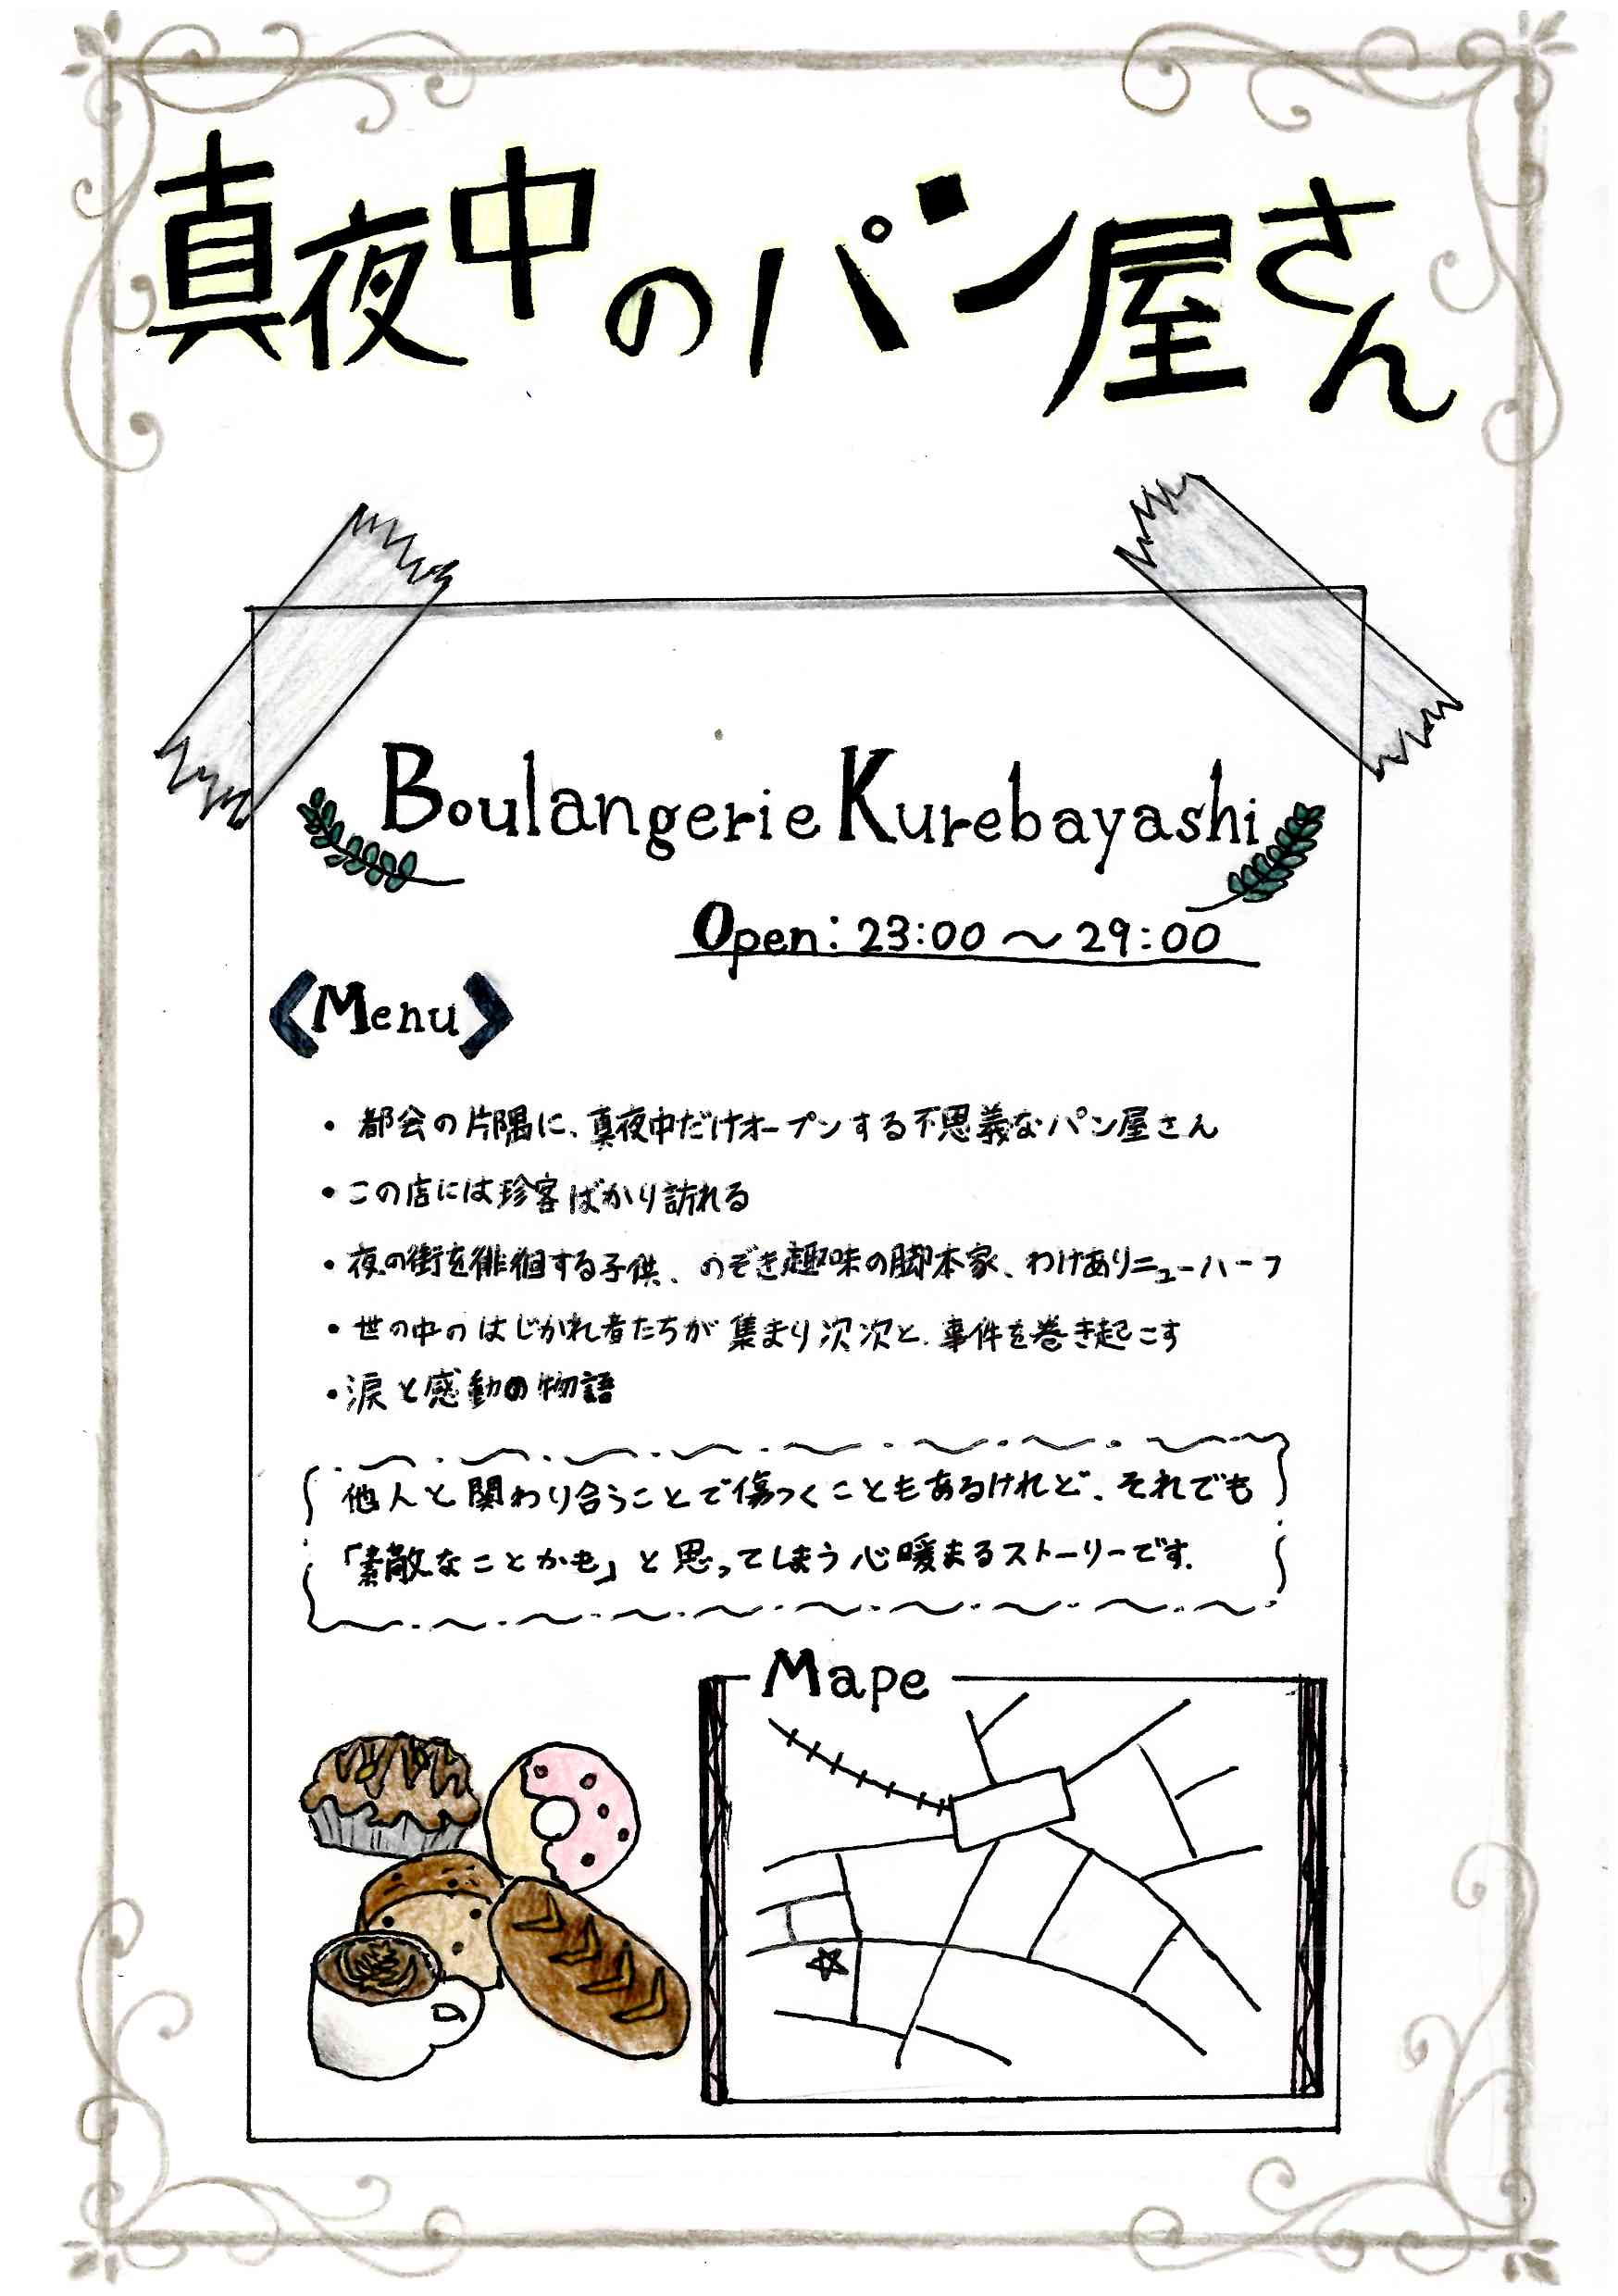 真夜中のパン屋さん
Boulangerie Kurebayashi
Open: 23:00 〜 29:00
《Menu》
・都会の片隅に、真夜中だけオープンする不思義なパン屋さん
・この店には珍客ばかり訪れる
・夜の街を徘徊する子供、のぞき趣味の脚本家、わけありニューハーフ
・世の中のはじかれ者たちが集まり次次と、事件を巻き起こす
・涙と感動の物語
他人と関わり合うことで傷つくこともあるけれど、それでも
「素敵なことかも」と思ってしまう心暖まるストーリーです.
Mape